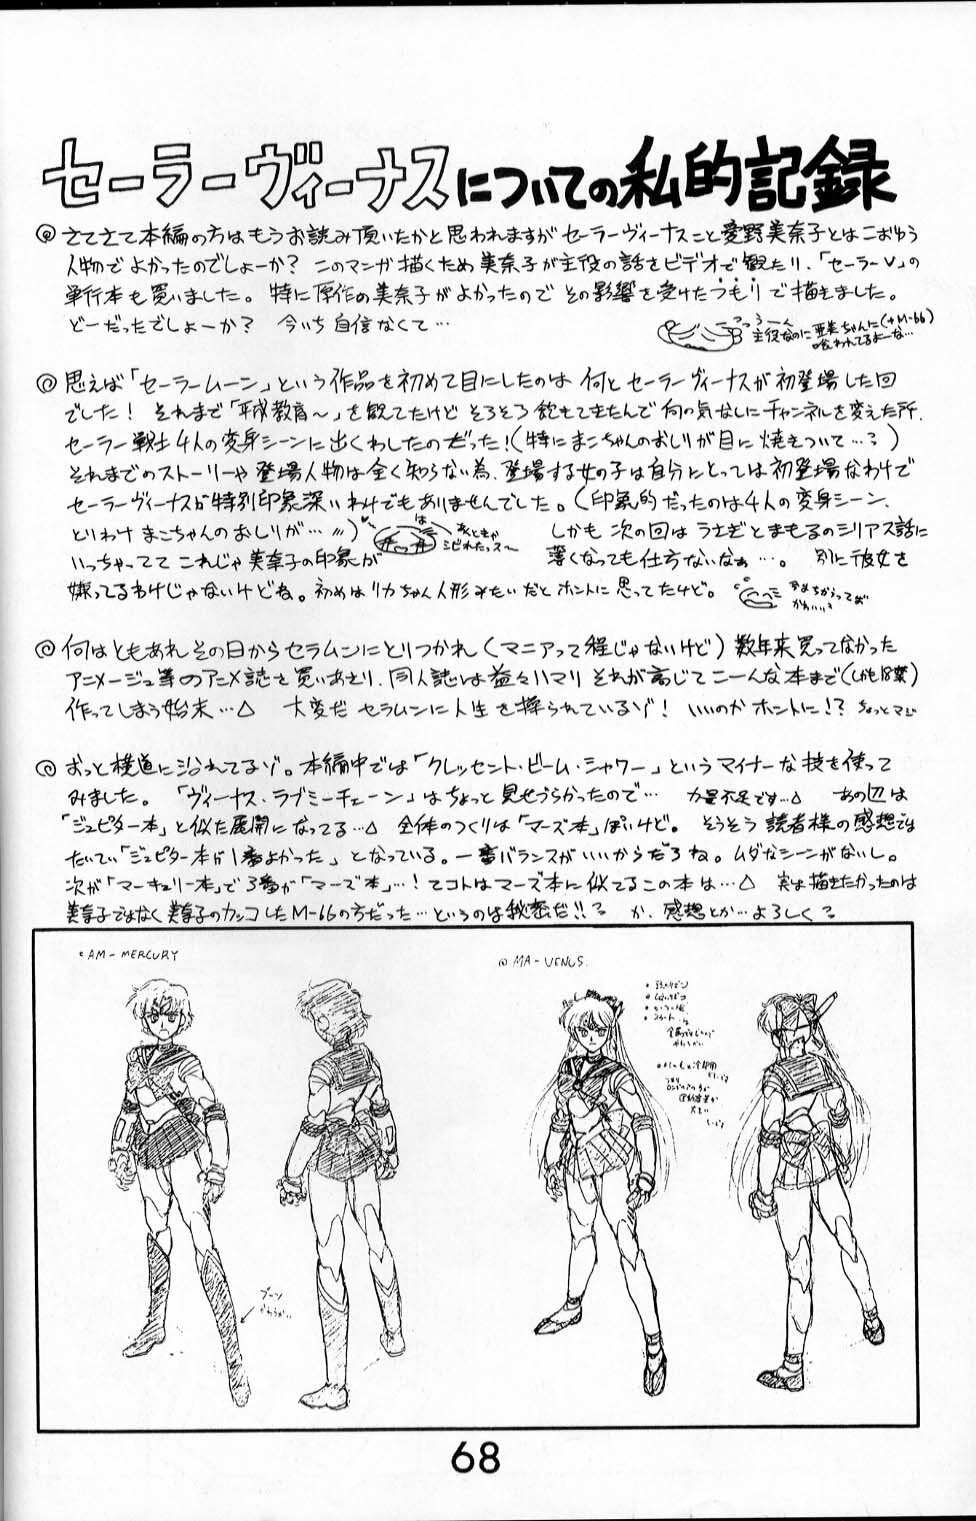 セーラーヴィーナスについての私的記録
◎ さてさて本編の方はもうお読み頂いたかと思われますがセーラーヴィーナスこと愛野美奈子とはこおゆう
人物でよかったのでしょーか? このマンガ描くため美奈子が主役の話をビデオで観たり、「セーラーV」の
単行本も買いました。特に原作の美奈子がよかったのでその影響を受けたつもりで描きました。
どーだったでしょーか? 今いち自信なくて…
主役なのに亜美ちゃんに(+M-66)
喰われてるよーな…
◎ 思えば「セーラームーン」という作品を初めて目にしたのは何とセーラーヴィーナスが初登場した回
でした! それまで「平成教育〜」を観てたけどそろそろ飽きてきたんで何の気なしにチャンネルを変えた所、
セーラー戦士4人の変身シーンに出くわしたのだった!(特にまこちゃんのおしりが目に焼きついて…?)
それまでのストーリーや登場人物は全く知らない為、登場する女の子は自分にとっては初登場なわけで
セーラーヴィーナスが特別印象深いわけでもありませんでした。(印象的だったのは4人の変身シーン、
とりわけまこちゃんのおしりが…〃) しかも次の回はうさぎとまもるのシリアス話に
いっちゃってて これじゃ美奈子の印象が 薄くなっても仕方ないなぁ…。 別に彼女を
嫌ってるわけじゃないけどね。初めはリカちゃん人形みたいだとホントに思ってたけど。
◎ 何はともあれその日からセラムンにとりつかれ(マニアって程じゃないけど)数年来買ってなかった
アニメージュ等のアニメ誌を買いあさり、同人誌には益々ハマリそれが高じてこーんな本まで(しかも18禁)
作ってしまう始末…△ 大変だ セラムンに人生を操られているゾ! いいのかホントに!? ちょっとマジ
◎ おっと横道に沿れてるゾ。本編中では「クレッセント・ビーム・シャワー」というマイナーな技を使って
みました。「ヴィーナス・ラブミーチェーン」はちょっと見せづらかったので… 力量不足です…△ あの辺は
「ジュピター本」と似た展開になってる…△ 全体のつくりは「マーズ本」ぽいけど。そうそう読者様の感想では
だいたい「ジュピター本が1番よかった」となっている。一番バランスがいいからだろね。ムダなシーンがないし。
次が「マーキュリー本」で3番が「マーズ本」…! てコトはマーズ本に似てるこの本は…△ 実は描きたかったのは
美奈子ではなく美奈子のカッコしたM-66の方だった…というのは秘密だ!! か、感想とか…よろしく
AM-MERCURY
◎ MA-VENUS.
68